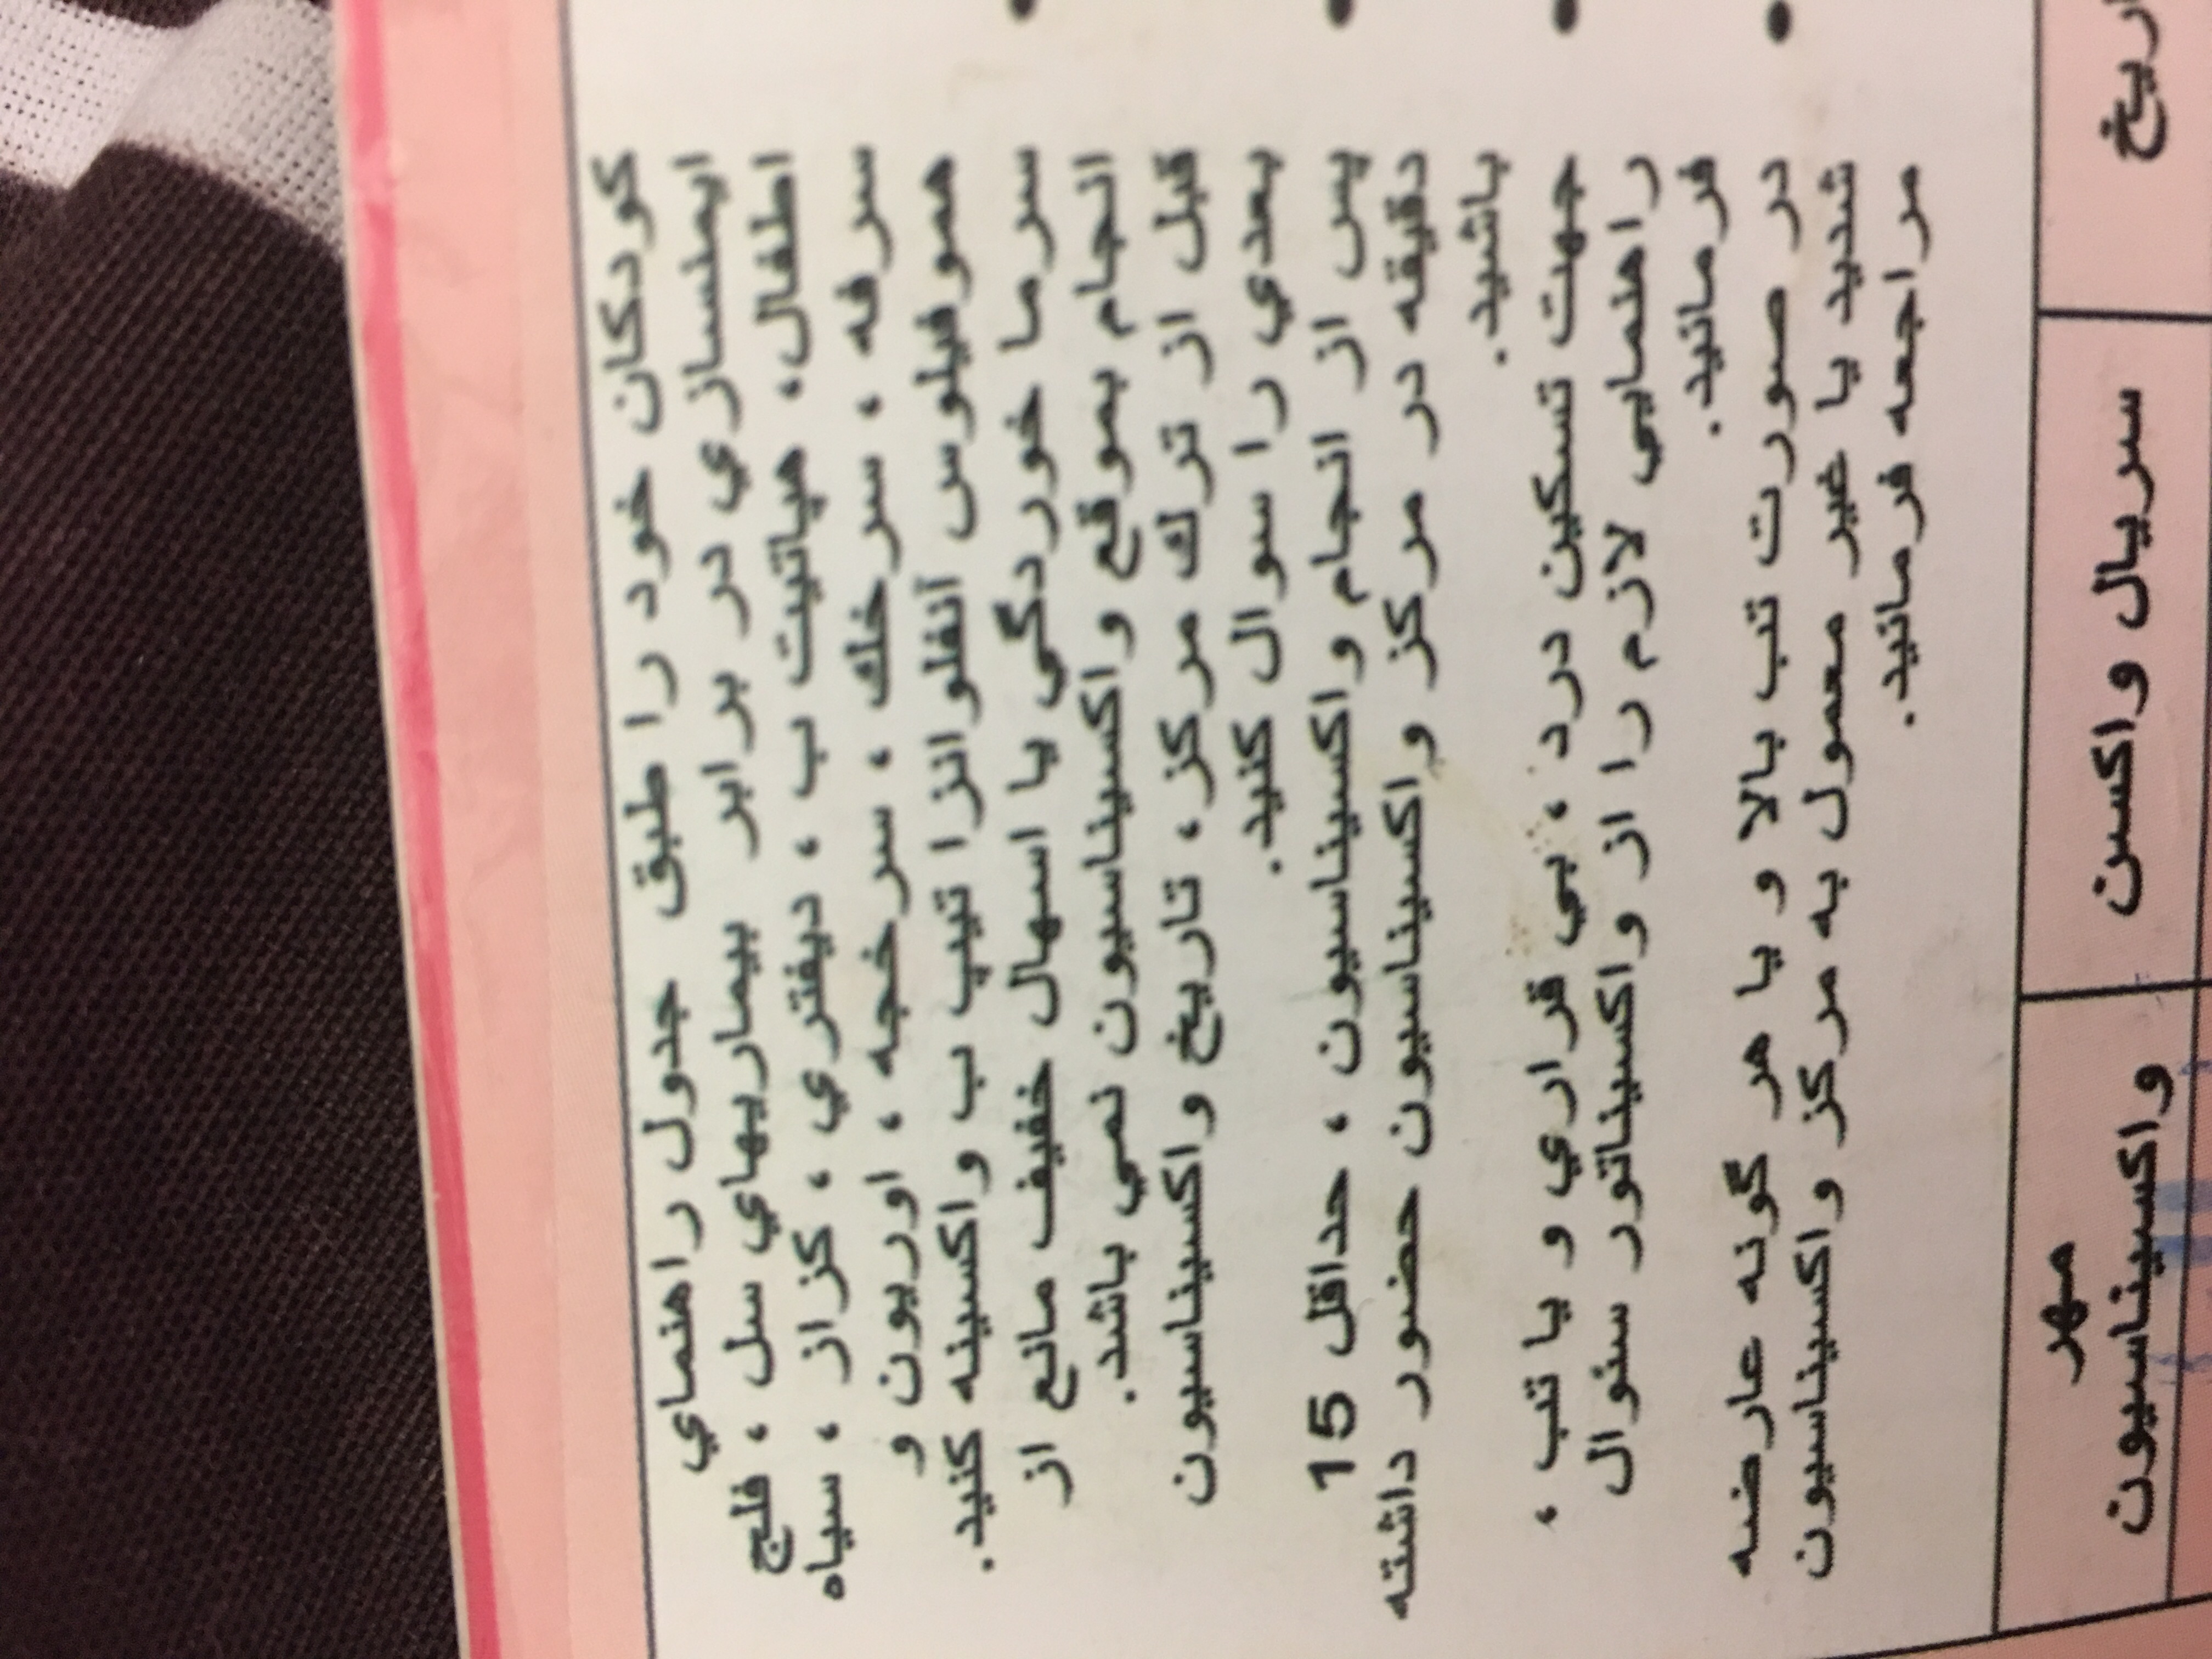 كودكان خود را طبق جدول راهنماي
ايمنسازي در برابر بيماريهاي سل ، فلج
اطفال، هپاتيت ب ، ديفتري ، كزاز ، سياه
سرفه ، سرخك ، سرخجه ، اوريون و
هموفيلوس آنفلوانزا تيپ ب واكسينه كنيد.
• سرما خوردگي يا اسهال خفيف مانع از
انجام بموقع واكسيناسيون نمي باشد.
قبل از ترك مركز، تاريخ واكسيناسيون
بعدي را سوال كنيد.
• پس از انجام واكسيناسيون ، حداقل 15
دقيقه در مركز واكسيناسيون حضور داشته
باشيد.
• جهت تسكين درد ، بي قراري و يا تب ،
راهنمايي لازم را از واكسيناتور سئوال
فرمائيد.
• در صورت تب بالا و يا هر گونه عارضه
شديد يا غير معمول به مركز واكسيناسيون
مراجعه فرمائيد.
سريال واكسن
مهر
واكسيناسيون